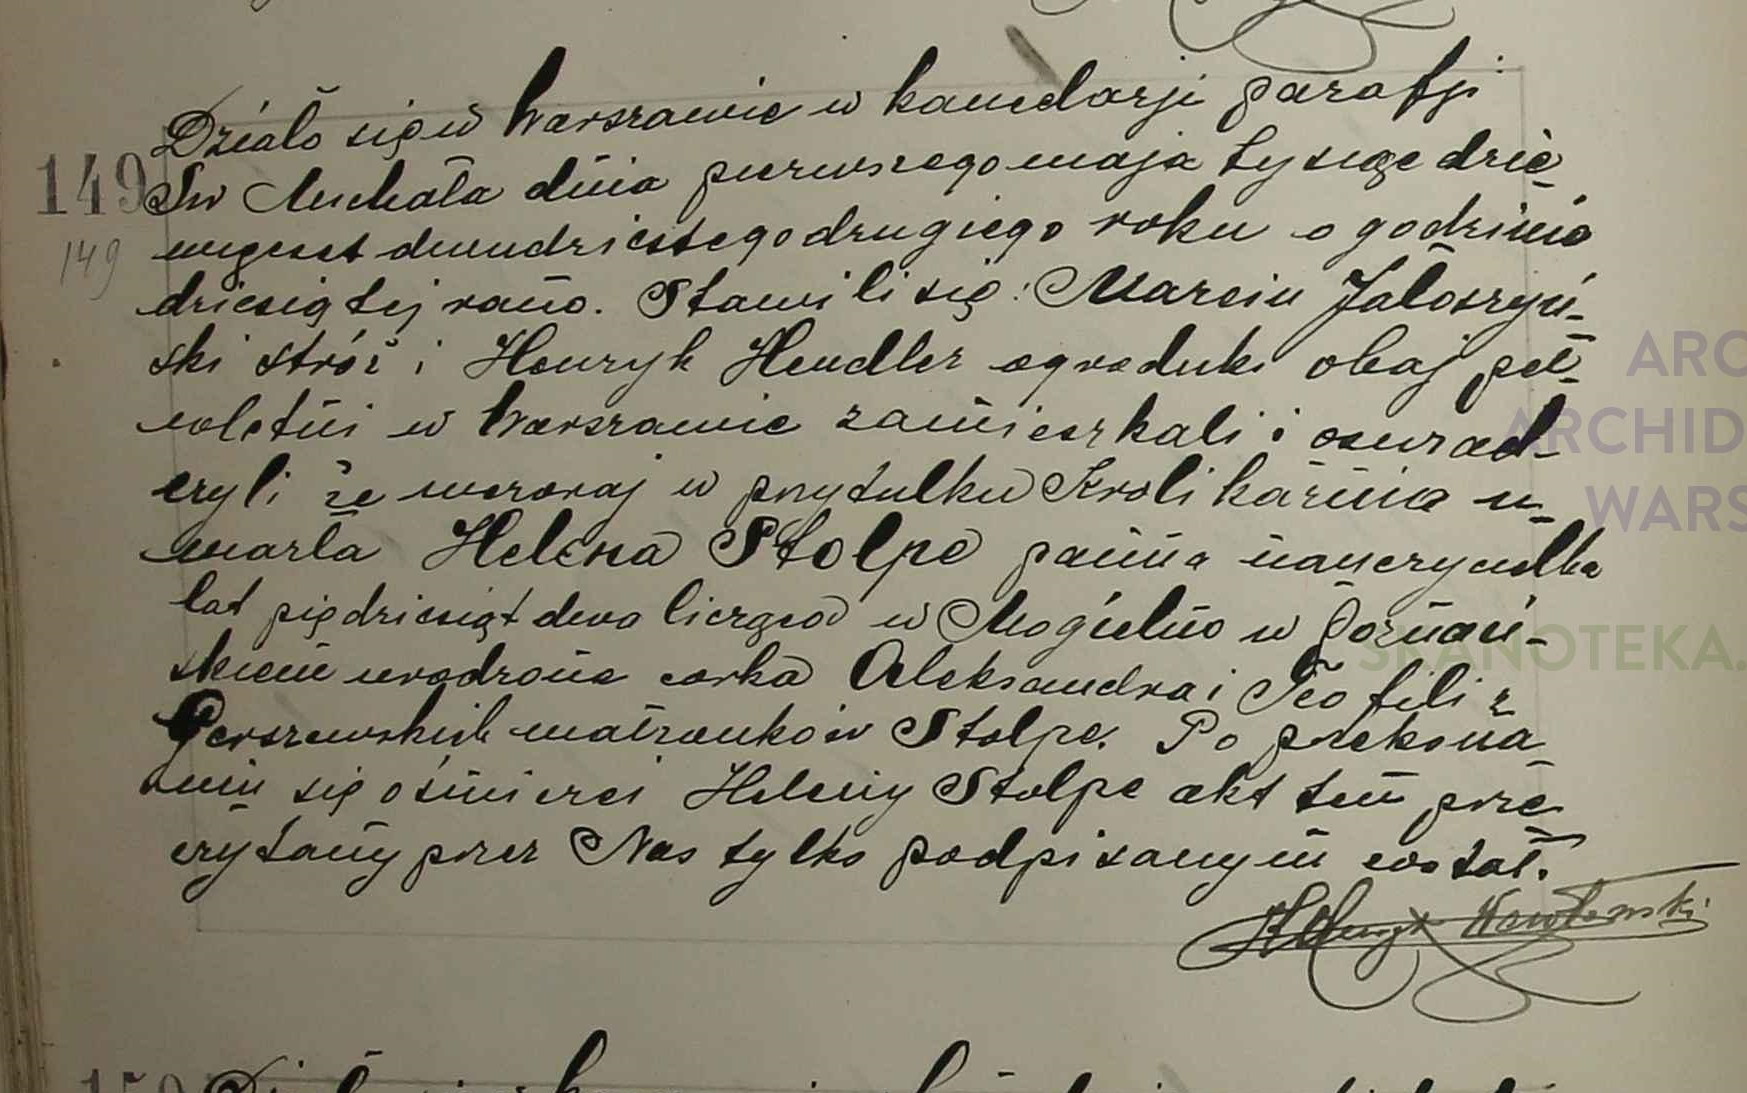 Działo się w Warszawie w kancelarji parafji
149 Św Michała dnia pierwszego maja tysiąc dzie-
149 więćset dwudziestego drugiego roku o godzinie
dziesiątej rano. Stawili się: Marcin Jałoszyń-
ski stróż i Henryk Hendler ogrodnik obaj peł-
noletni w Warszawie zamieszkali i oświad-
czyli że wczoraj w przytułku Królikarnia u-
marła Helena Stolpe panna nauczycielka
lat piędziesiąt dwa licząca w Mogielno w Poznań-
skiem urodzona córka Aleksandra i Teofili z
Gerszewskich małżonków Stolpe. Po przekona-
niu się o śmierci Heleny Stolpe akt ten prze-
czytany przez Nas tylko podpisanym został.
ARC
ARCHID
WARS
SKANOTEKA.
150